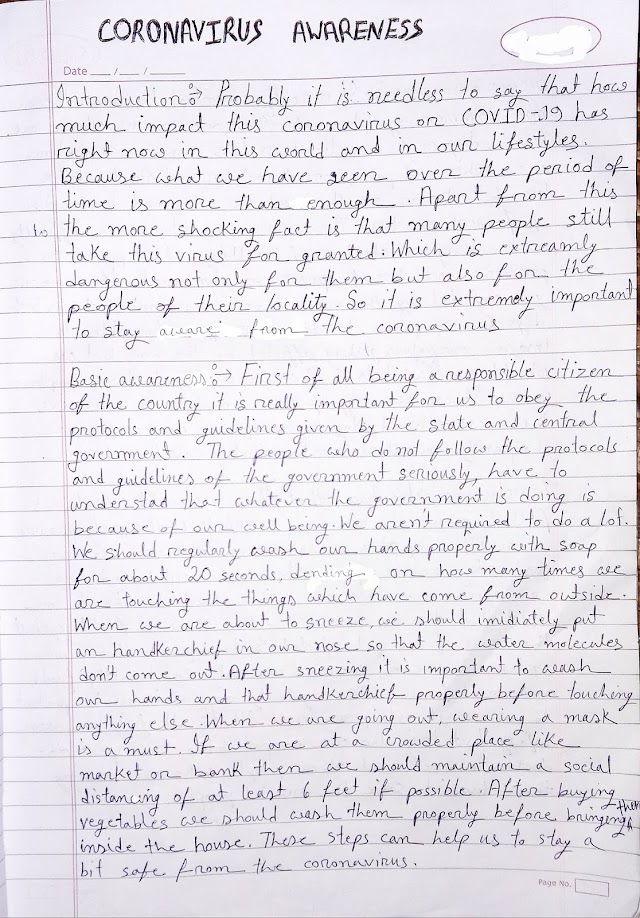 CORONAVIRUS AWARENESS
Date __/__/____
Introduction:→ Probably it is needless to say that how
much impact this coronavirus or COVID-19 has
right now in this world and in our lifestyles.
Because what we have seen over the period of
time is more than enough. Apart from this
the more shocking fact is that many people still
take this virus for granted. Which is extreamly
dangerous not only for them but also for the
people of their locality. So it is extremely important
to stay aware from the coronavirus
Basic awareness:→ First of all being a responsible citizen
of the country it is really important for us to obey the
protocols and guidelines given by the state and central
government. The people who do not follow the protocols
and guidelines of the government seriously, have to
understad that whatever the government is doing is
because of our well being. We aren't required to do a lot.
We should regularly wash our hands properly with soap
for about 20 seconds, dending on how many times we
are touching the things which have come from outside.
When we are about to sneeze, we should imidiately put
an handkerchief in our nose so that the water molecules
don't come out. After sneezing it is important to wash
our hands and that handkerchief properly before touching
anything else. When we are going out, wearing a mask
is a must. If we are at a crowded place like
market or bank then we should maintain a social
distancing of at least 6 feet if possible. After buying
vegetables we should wash them properly before bringing them
inside the house. These steps can help us to stay a
bit safe from the coronavirus.
Page No.